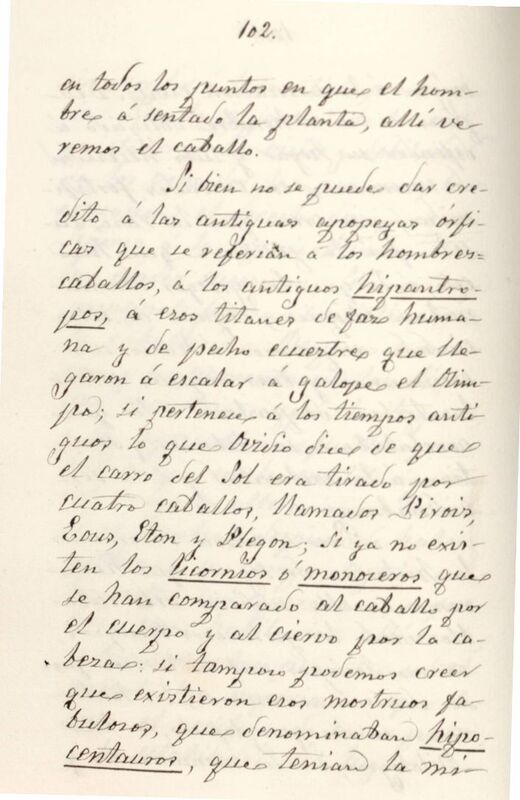 102.
en todos los puntos en que el hom-
bre á sentado la planta, allí ve-
remos el caballo.
Si bien no se puede dar cre-
dito á las antiguas apopeyas órfi-
cas que se referian á los hombres=
caballos, á los antiguos hipantro-
pos, á esos titanes de faz huma-
na y de pecho ecuestre que lle-
garon á escalar á galope el Olim-
po; si pertenece á los tiempos anti
guos lo que Ovidio dice de que
el carro del Sol era tirado por
cuatro caballos, llamados Pirois,
Eous, Eton y Plegon; Si ya no exis-
ten los licornios ó monoceros que
se han comparado al caballo por
el cuerpo y al ciervo por la ca-
beza: si tampoco podemos creer
que existieron esos mostruos fa-
bulosos, que denominaban hipo-
centauros, que tenian la mi-